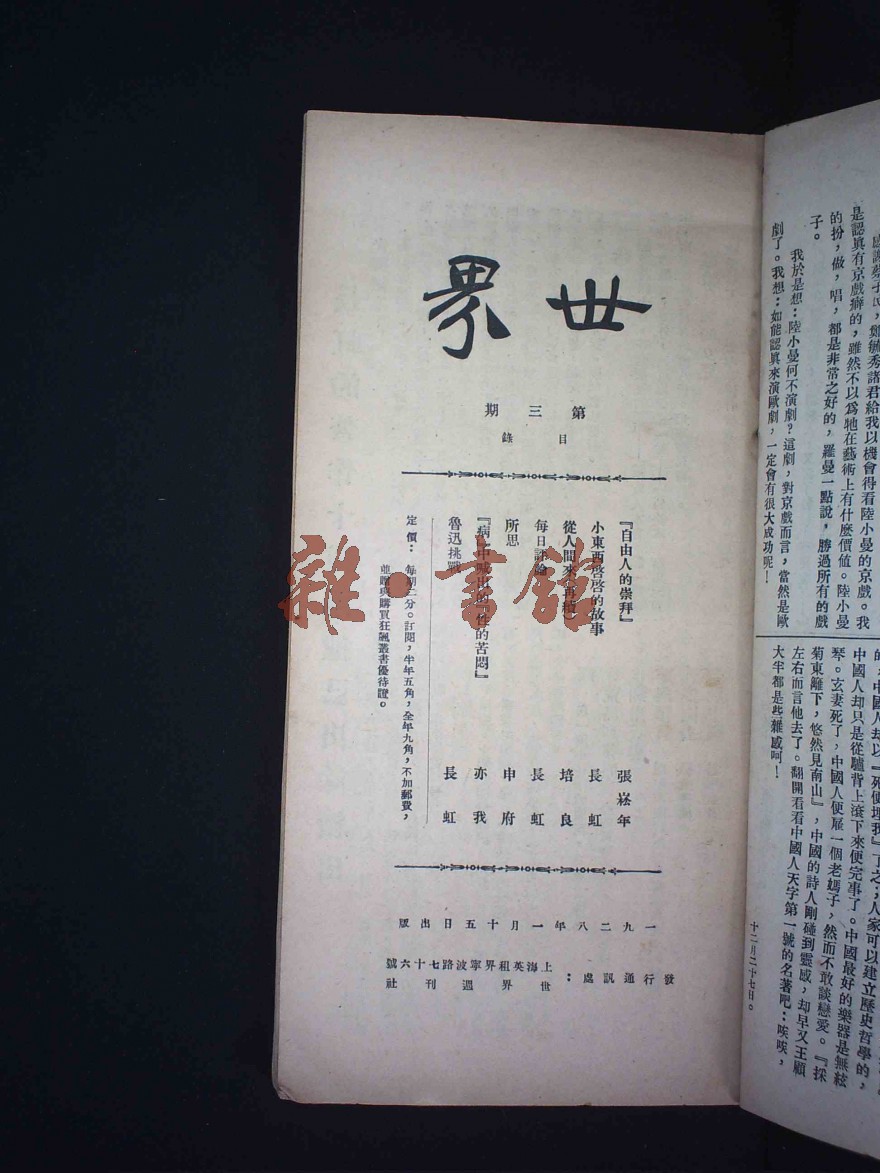 世界
第三期
目錄
『自由人的崇拜』 張崧年
小東西啓啓的故事 長虹
從人間來（再續） 培良
每日評論 長虹
所思 申府
『病』中喊出的『性的苦悶』 亦我
魯迅挑戰 長虹
定價：每期二分。訂閱，半年五角，全年九角，不加郵費，
並贈與購買狂飆叢書優待證。
一九二八年一月十五日出版
發行通訊處：上海英租界寧波路七十六號
世界週刊社
雜·書館
鄭毓秀諸君給我以機會得看陸小曼的京戲。我
是認真有京戲癖的，雖然不以爲牠在藝術上有什麼價值。陸小曼
的扮，做，唱，都是非常之好的，羅曼一點說，勝過所有的戲
子。
我於是想：陸小曼何不演劇？這劇，對京戲而言，當然是歐
劇了。我想：如能認眞來演歐劇，一定會有很大成功呢！
的，中國人却以『死便埋我』了之；人家可以建立歷史哲學的，
中國人却只是從驢背上滾下來便完事了。中國最好的樂器是無絃
琴。玄妻死了，中國人便雇一個老媽子，然而不敢談戀愛。『採
菊東籬下，悠然見南山』，中國的詩人剛碰到靈感，却早又王顧
左右而言他去了。翻開看看中國人天字第一號的名著吧：唉唉，
大半都是些雜感呵！
十二月二十七日。